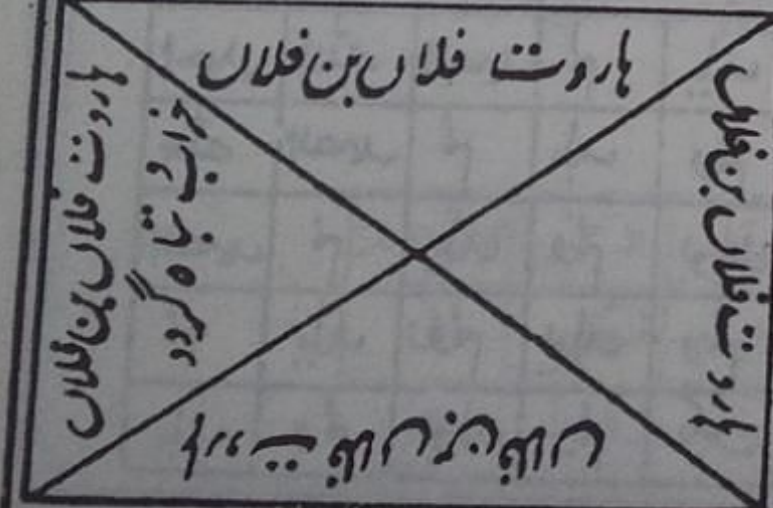 ہاروت فلاں بن فلاں
ہاروت فلاں بن فلاں
ہاروت فلاں بن فلاں
ہاروت فلاں بن فلاں
خراب و تباہ گردد